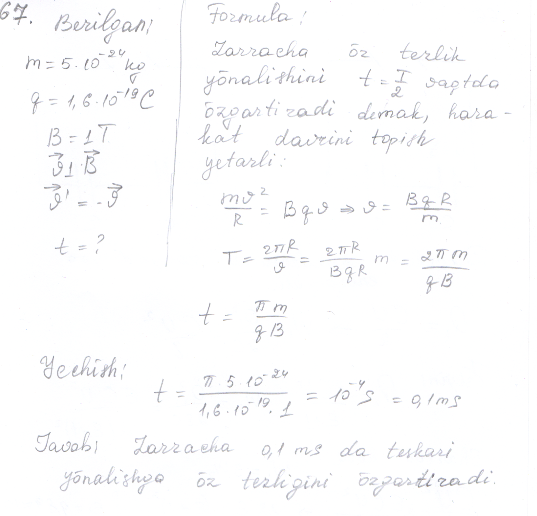 67. Berilgan:
m = 5·10⁻²⁴ kg
q = 1,6·10⁻¹⁹ C
B = 1 T
ϑ⃗ ⊥ B⃗
ϑ⃗' = -ϑ⃗
t = ?
Formula:
Zarracha öz tezlik
yönalishini t = T/2 vaqtda
özgartiradi demak, hara-
kat davrini topish
yetarli:
mϑ²/R = Bqϑ ⇒ ϑ = BqR/m
T = 2πR/ϑ = 2πR/BqR m = 2πm/qB
t = πm/qB
Yechish:
t = π·5·10⁻²⁴/1,6·10⁻¹⁹·1 = 10⁻⁴ s = 0,1 ms
Javob: Zarracha 0,1 ms da teskari
yönalishga öz tezligini özgartiradi.